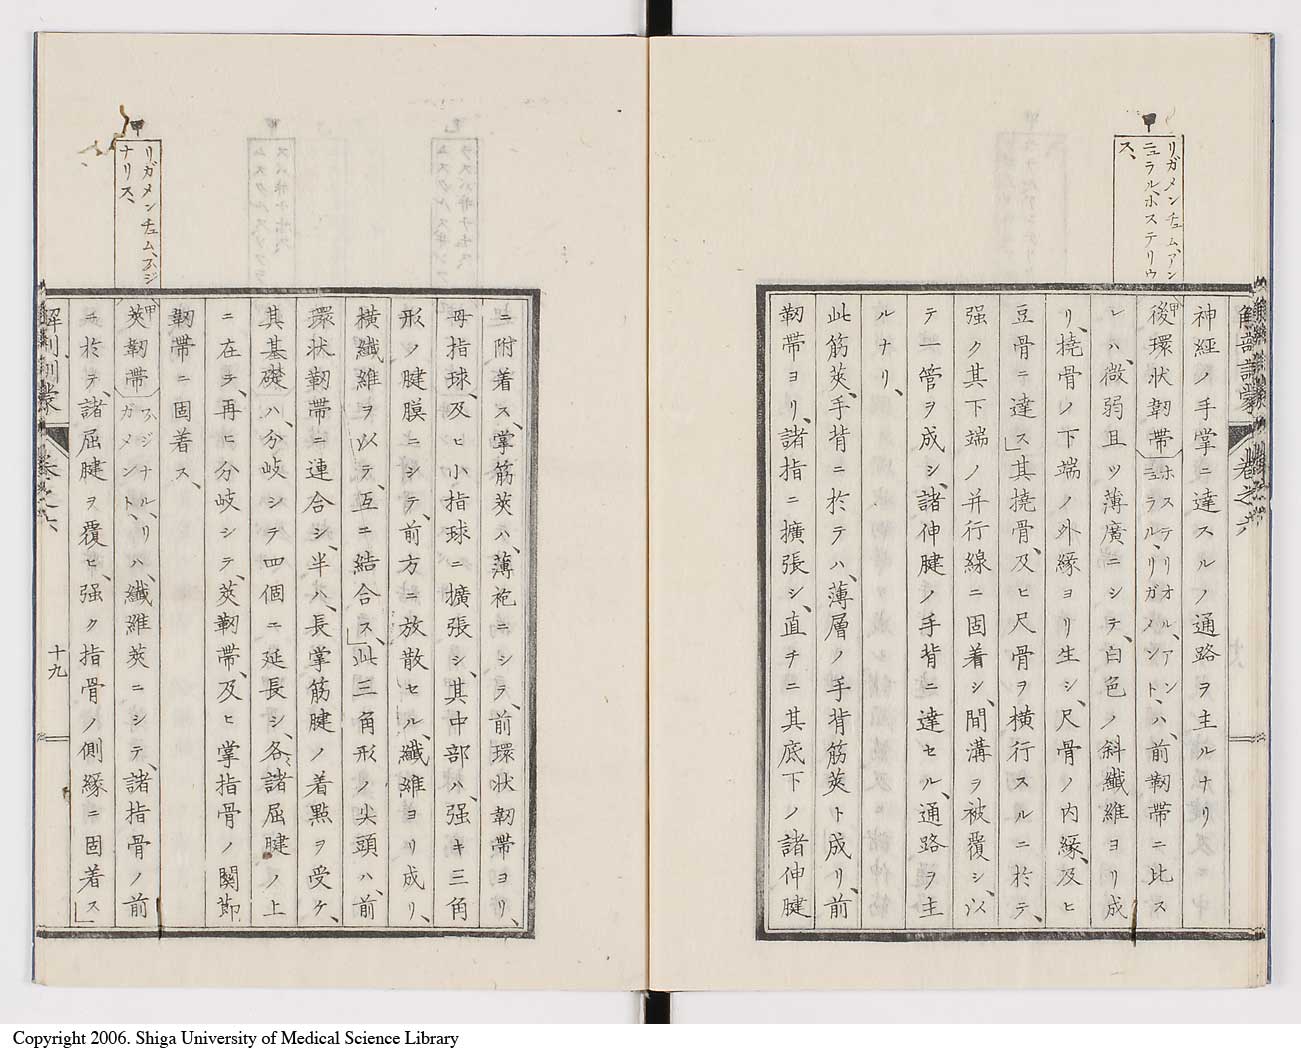 甲
リガメンチュム、アン
ニュラル、ホステリウ
ス、
解剖訓蒙 巻之六
神經ノ手掌ニ達スルノ通路ヲ主ルナリ
甲後環状靭帯 ホステリオル、アン、
ニュラル、リガメント、ハ、前靭帯ニ比ス
レハ、微弱且ツ薄廣ニシテ、白色ノ斜纖維ヨリ成
リ、撓骨ノ下端ノ外緣ヨリ生シ、尺骨ノ内緣、及ヒ
豆骨ニ達ス」其撓骨、及ヒ尺骨ヲ横行スルニ於テ、
强ク其下端ノ并行線ニ固着シ、間溝ヲ被覆シ、以
テ一管ヲ成シ、諸伸腱ノ手背ニ達セル、通路ヲ主
ルナリ、
此筋莢、手背ニ於テハ、薄層ノ手背筋莢ト成リ、前
靭帯ヨリ、諸指ニ擴張シ、直チニ其底下ノ諸伸腱
ニ附着ス、掌筋莢ハ、薄袍ニシテ、前環状靭帯ヨリ、
母指球、及ヒ小指球ニ擴張シ、其中部ハ、强キ三角
形ノ腱膜ニシテ、前方ニ放散セル、纖維ヨリ成リ、
横纖維ヲ以テ、互ニ結合ス」此三角形ノ尖頭ハ、前
環状靭帯ニ連合シ、半ハ、長掌筋腱ノ着點ヲ受ケ、
其基礎ハ、分岐シテ四個ニ延長シ、各、諸屈腱ノ上
ニ在テ、再ヒ分岐シテ、莢靭帯、及ヒ掌指骨ノ關節
靭帯ニ固着ス、
甲
リガメンチュム、ハジ
ナリス、
甲莢靭帯 ハジナル、リ
ガメント、ハ、纖維莢ニシテ、諸指骨ノ前
ニ於テ、諸屈腱ヲ覆ヒ、强ク指骨ノ側緣ニ固着ス」
解剖訓蒙 巻之六
十九
Copyright 2006. Shiga University of Medical Science Library